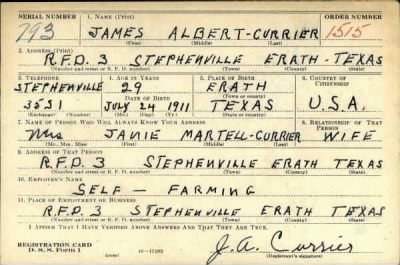 SERIAL NUMBER 1. NAME (Print) ORDER NUMBER
793 JAMES ALBERT-CURRIER 1515
(First) (Middle) (Last)
2. ADDRESS (Print)
R.F.D. 3 STEPHENVILLE ERATH-TEXAS
(Number and street or R. F. D. number) (Town) (County) (State)
3. TELEPHONE 4. AGE IN YEARS 5. PLACE OF BIRTH 6. COUNTRY OF CITIZENSHIP
STEPHENVILLE 29 ERATH
DATE OF BIRTH (Town or county)
3531 JULY 24 1911 TEXAS U.S.A.
(Exchange) (Number) (Mo.) (Day) (Yr.) (State or country)
7. NAME OF PERSON WHO WILL ALWAYS KNOW YOUR ADDRESS 8. RELATIONSHIP OF THAT PERSON
Mrs JANIE MARTELL-CURRIER WIFE
(Mr., Mrs., Miss) (First) (Middle) (Last)
9. ADDRESS OF THAT PERSON
R.F.D. 3 STEPHENVILLE ERATH TEXAS
(Number and street or R. F. D. number) (Town) (County) (State)
10. EMPLOYER'S NAME
SELF - FARMING
11. PLACE OF EMPLOYMENT OR BUSINESS
R.F.D. 3 STEPHENVILLE ERATH TEXAS
(Number and street or R. F. D. number) (Town) (County) (State)
I AFFIRM THAT I HAVE VERIFIED ABOVE ANSWERS AND THAT THEY ARE TRUE.
REGISTRATION CARD
D. S. S. Form 1 J.A. Currier
(Registrant's signature)